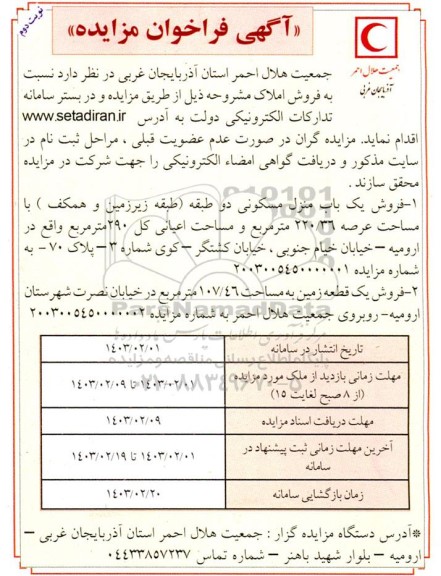 نوبت دوم
«آگهی فراخوان مزایده»
جمعیت هلال احمر
آذربایجان غربی
جمعیت هلال احمر استان آذربایجان غربی در نظر دارد نسبت
به فروش املاک مشروحه ذیل از طریق مزایده و در بستر سامانه
تدارکات الکترونیکی دولت به آدرس www.setadiran.ir
اقدام نماید. مزایده گران در صورت عدم عضویت قبلی ، مراحل ثبت نام در
سایت مذکور و دریافت گواهی امضاء الکترونیکی را جهت شرکت در مزایده
محقق سازند .
۱-فروش یک باب منزل مسکونی دو طبقه (طبقه زیرزمین و همکف ) با
مساحت عرصه ۲۲۰/۳۶ مترمربع و مساحت اعیانی کل ۲۹۰مترمربع واقع در
ارومیه –خیابان خیام جنوبی ، خیابان کشتگر –کوی شماره ۳ – پلاک ۷۰ - به
شماره مزایده ۲۰۰۳۰۰۵۴۵۰۰۰۰۰۰۱
۲-فروش یک قطعه زمین به مساحت ۱۰۷/۴۶ مترمربع در خیابان نصرت شهرستان
ارومیه- روبروی جمعیت هلال احمر به شماره مزایده ۲۰۰۳۰۰۵۴۵۰۰۰۰۰۰۲
تاریخ انتشار در سامانه ۱۴۰۳/۰۲/۰۱
مهلت زمانی بازدید از ملک مورد مزایده
(از ۸ صبح لغایت ۱۵) ۱۴۰۳/۰۲/۰۱ تا ۱۴۰۳/۰۲/۰۹
مهلت دریافت اسناد مزایده ۱۴۰۳/۰۲/۰۹
آخرین مهلت زمانی ثبت پیشنهاد در
سامانه ۱۴۰۳/۰۲/۰۱ تا ۱۴۰۳/۰۲/۱۹
زمان بازگشایی سامانه ۱۴۰۳/۰۲/۲۰
*آدرس دستگاه مزایده گزار : جمعیت هلال احمر استان آذربایجان غربی –
ارومیه – بلوار شهید باهنر – شماره تماس ۰۴۴۳۳۸۵۷۲۳۷